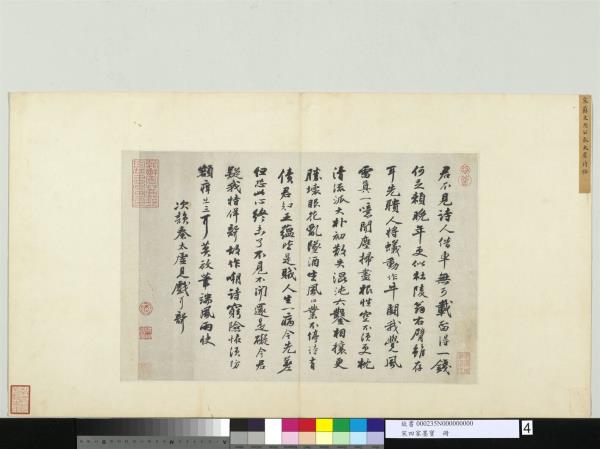 君不見詩人借車無可載留得一錢
何足賴晚年更似杜陵翁右臂雖存
耳先聵人將蟻動作牛鬬我覺風
雷真一噫聞塵掃盡根性空不須更枕
清流派大朴初散失混沌六鑿相攘更
勝壞眼花亂墜酒生風口業不停詩有
債君知五蘊皆是賊人生一病今先差
但恐此心終未了不見不聞還是礙今君
疑我特佯聾故作嘲詩窮險怪須防
額癢出三耳莫放筆端風雨快
次韻秦太虛見戲耳聾
故書 000235N000000000
宋四家墨寶 冊
4